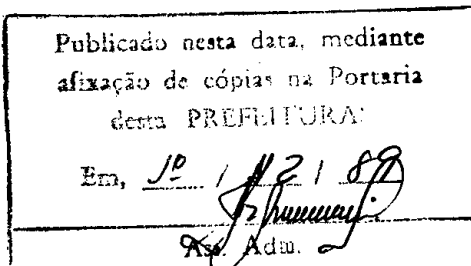 Publicado nesta data, mediante
afixação de cópias na Portaria
desta PREFEITURA:
Em, 1º / 12 / 89
Ass. Adm.